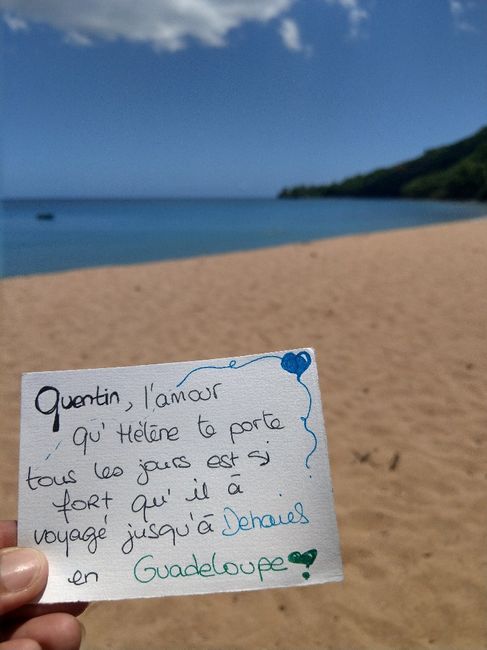 Quentin, l'amour
qu'Hélène te porte
tous les jours est si
fort qu'il à
voyagé jusqu'à Dehaies
en Guadeloupe